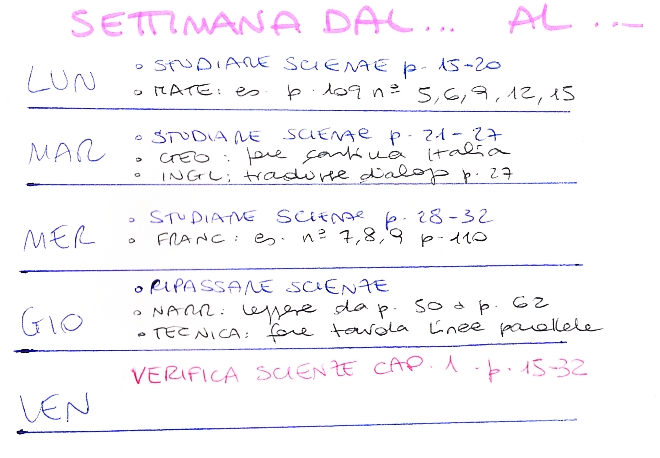 SETTIMANA DAL... AL...
LUN
• STUDIARE SCIENZE p. 15-20
• MATE: es. p. 109 n° 5,6,9,12,15
MAR
• STUDIARE SCIENZE p. 21-27
• GEO: fare cartina Italia
• INGL: tradurre dialogo p. 27
MER
• STUDIARE SCIENZE p. 28-32
• FRANC: es. n° 7,8,9 p. 110
GIO
• RIPASSARE SCIENZE
• NARR: leggere da p. 50 a p. 62
• TECNICA: fare tavola linee parallele
VEN
VERIFICA SCIENZE CAP. 1 - p. 15-32